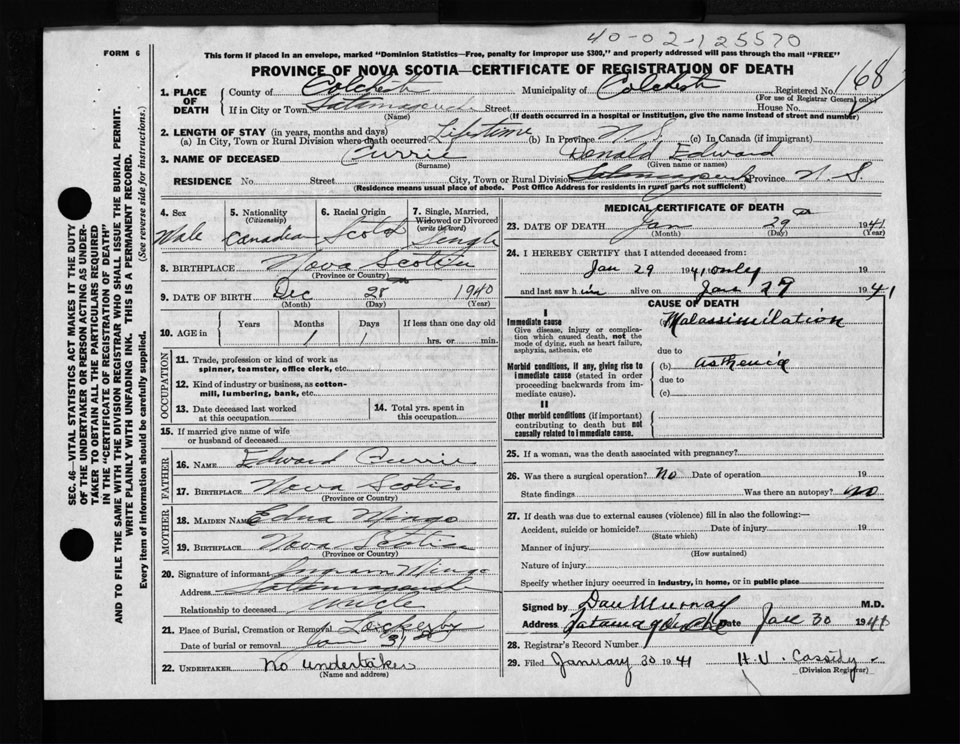 40-02-125570
FORM 6
This form if placed in an envelope, marked "Dominion Statistics—Free, penalty for improper use $300," and properly addressed will pass through the mail "FREE"
PROVINCE OF NOVA SCOTIA—CERTIFICATE OF REGISTRATION OF DEATH
1. PLACE OF DEATH
County of Colchester Municipality of Colchester Registered No. 168
(For use of Registrar General only)
If in City or Town Tatamagouche Street House No.
(Name) (If death occurred in a hospital or institution, give its name instead of street and number)
2. LENGTH OF STAY (in years, months and days)
(a) In City, Town or Rural Division where death occurred Lifetime (b) In Province N.S. (c) In Canada (if immigrant)
3. NAME OF DECEASED Currie Donald Edward
(Surname) (Given name or names)
RESIDENCE No. Street City, Town or Rural Division Tatamagouche Province N. S.
(Residence means usual place of abode. Post Office Address for residents in rural parts not sufficient)
4. Sex Male
5. Nationality (Citizenship) Canadian
6. Racial Origin Scotch
7. Single, Married, Widowed or Divorced (write the word) Single
8. BIRTHPLACE Nova Scotia
(Province or Country)
9. DATE OF BIRTH Dec 28 1940
(Month) (Day) (Year)
10. AGE in Years Months 1 Days 1 If less than one day old hrs. or min.
OCCUPATION
11. Trade, profession or kind of work as spinner, teamster, office clerk, etc.
12. Kind of industry or business, as cotton-mill, lumbering, bank, etc.
13. Date deceased last worked at this occupation
14. Total yrs. spent in this occupation
15. If married give name of wife or husband of deceased
FATHER
16. NAME Edward Currie
17. BIRTHPLACE Nova Scotia
(Province or Country)
MOTHER
18. MAIDEN NAME Edna Mingo
19. BIRTHPLACE Nova Scotia
(Province or Country)
20. Signature of informant Ingram Mingo
Address Tatamagouche
Relationship to deceased Uncle
21. Place of Burial, Cremation or Removal Lockerby
Date of burial or removal Jan 31
22. UNDERTAKER No undertaker
(Name and address)
MEDICAL CERTIFICATE OF DEATH
23. DATE OF DEATH Jan 29 1941
(Month) (Day) (Year)
24. I HEREBY CERTIFY that I attended deceased from:
Jan 29 1941, only 19
and last saw him alive on Jan 29 1941
CAUSE OF DEATH
I
Immediate cause Malassimilation
Give disease, injury or complication which caused death, not the mode of dying, such as heart failure, asphyxia, asthenia, etc
due to
Morbid conditions, if any, giving rise to immediate cause (stated in order proceeding backwards from immediate cause).
(b) asthenia
due to
(c)
II
Other morbid conditions (if important) contributing to death but not causally related to immediate cause.
25. If a woman, was the death associated with pregnancy?
26. Was there a surgical operation? No Date of operation 19
State findings Was there an autopsy? no
27. If death was due to external causes (violence) fill in also the following:—
Accident, suicide or homicide? Date of injury 19
(State which)
Manner of injury
(How sustained)
Nature of injury
Specify whether injury occurred in industry, in home, or in public place
Signed by Dan Murray M.D.
Address Tatamagouche Date Jan 30 1941
28. Registrar's Record Number 1
29. Filed January 30 1941 H. V. Cassidy
(Division Registrar)
SEC. 46—VITAL STATISTICS ACT MAKES IT THE DUTY
OF THE UNDERTAKER OR PERSON ACTING AS UNDER-
TAKER TO OBTAIN ALL THE PARTICULARS REQUIRED
IN THE "CERTIFICATE OF REGISTRATION OF DEATH"
AND TO FILE THE SAME WITH THE DIVISION REGISTRAR WHO SHALL ISSUE THE BURIAL PERMIT.
WRITE PLAINLY WITH UNFADING INK. THIS IS A PERMANENT RECORD.
Every item of information should be carefully supplied. (See reverse side for instructions.)